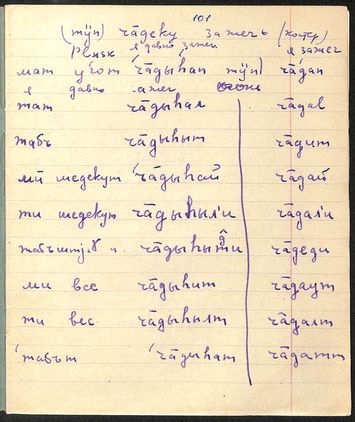 101
(тӱн) ча̄деку зажечь (котӷ)
я давно зажег я зажег
мат уго̄т ча̄дыһап тӱн) ча̄дап
я давно зажег
тат ча̄дыһал ча̄дал
табъ ча̄дыһыт ча̄дит
мӣ шедекут ча̄дыһай ча̄дай
ти шедекут ча̄дыһыли ча̄дали
ча̄дыһыти ча̄деди
ми все ча̄дыһит ча̄даут
ти вес ча̄дыһылт ча̄далт
табът ча̄дыһат ча̄датт